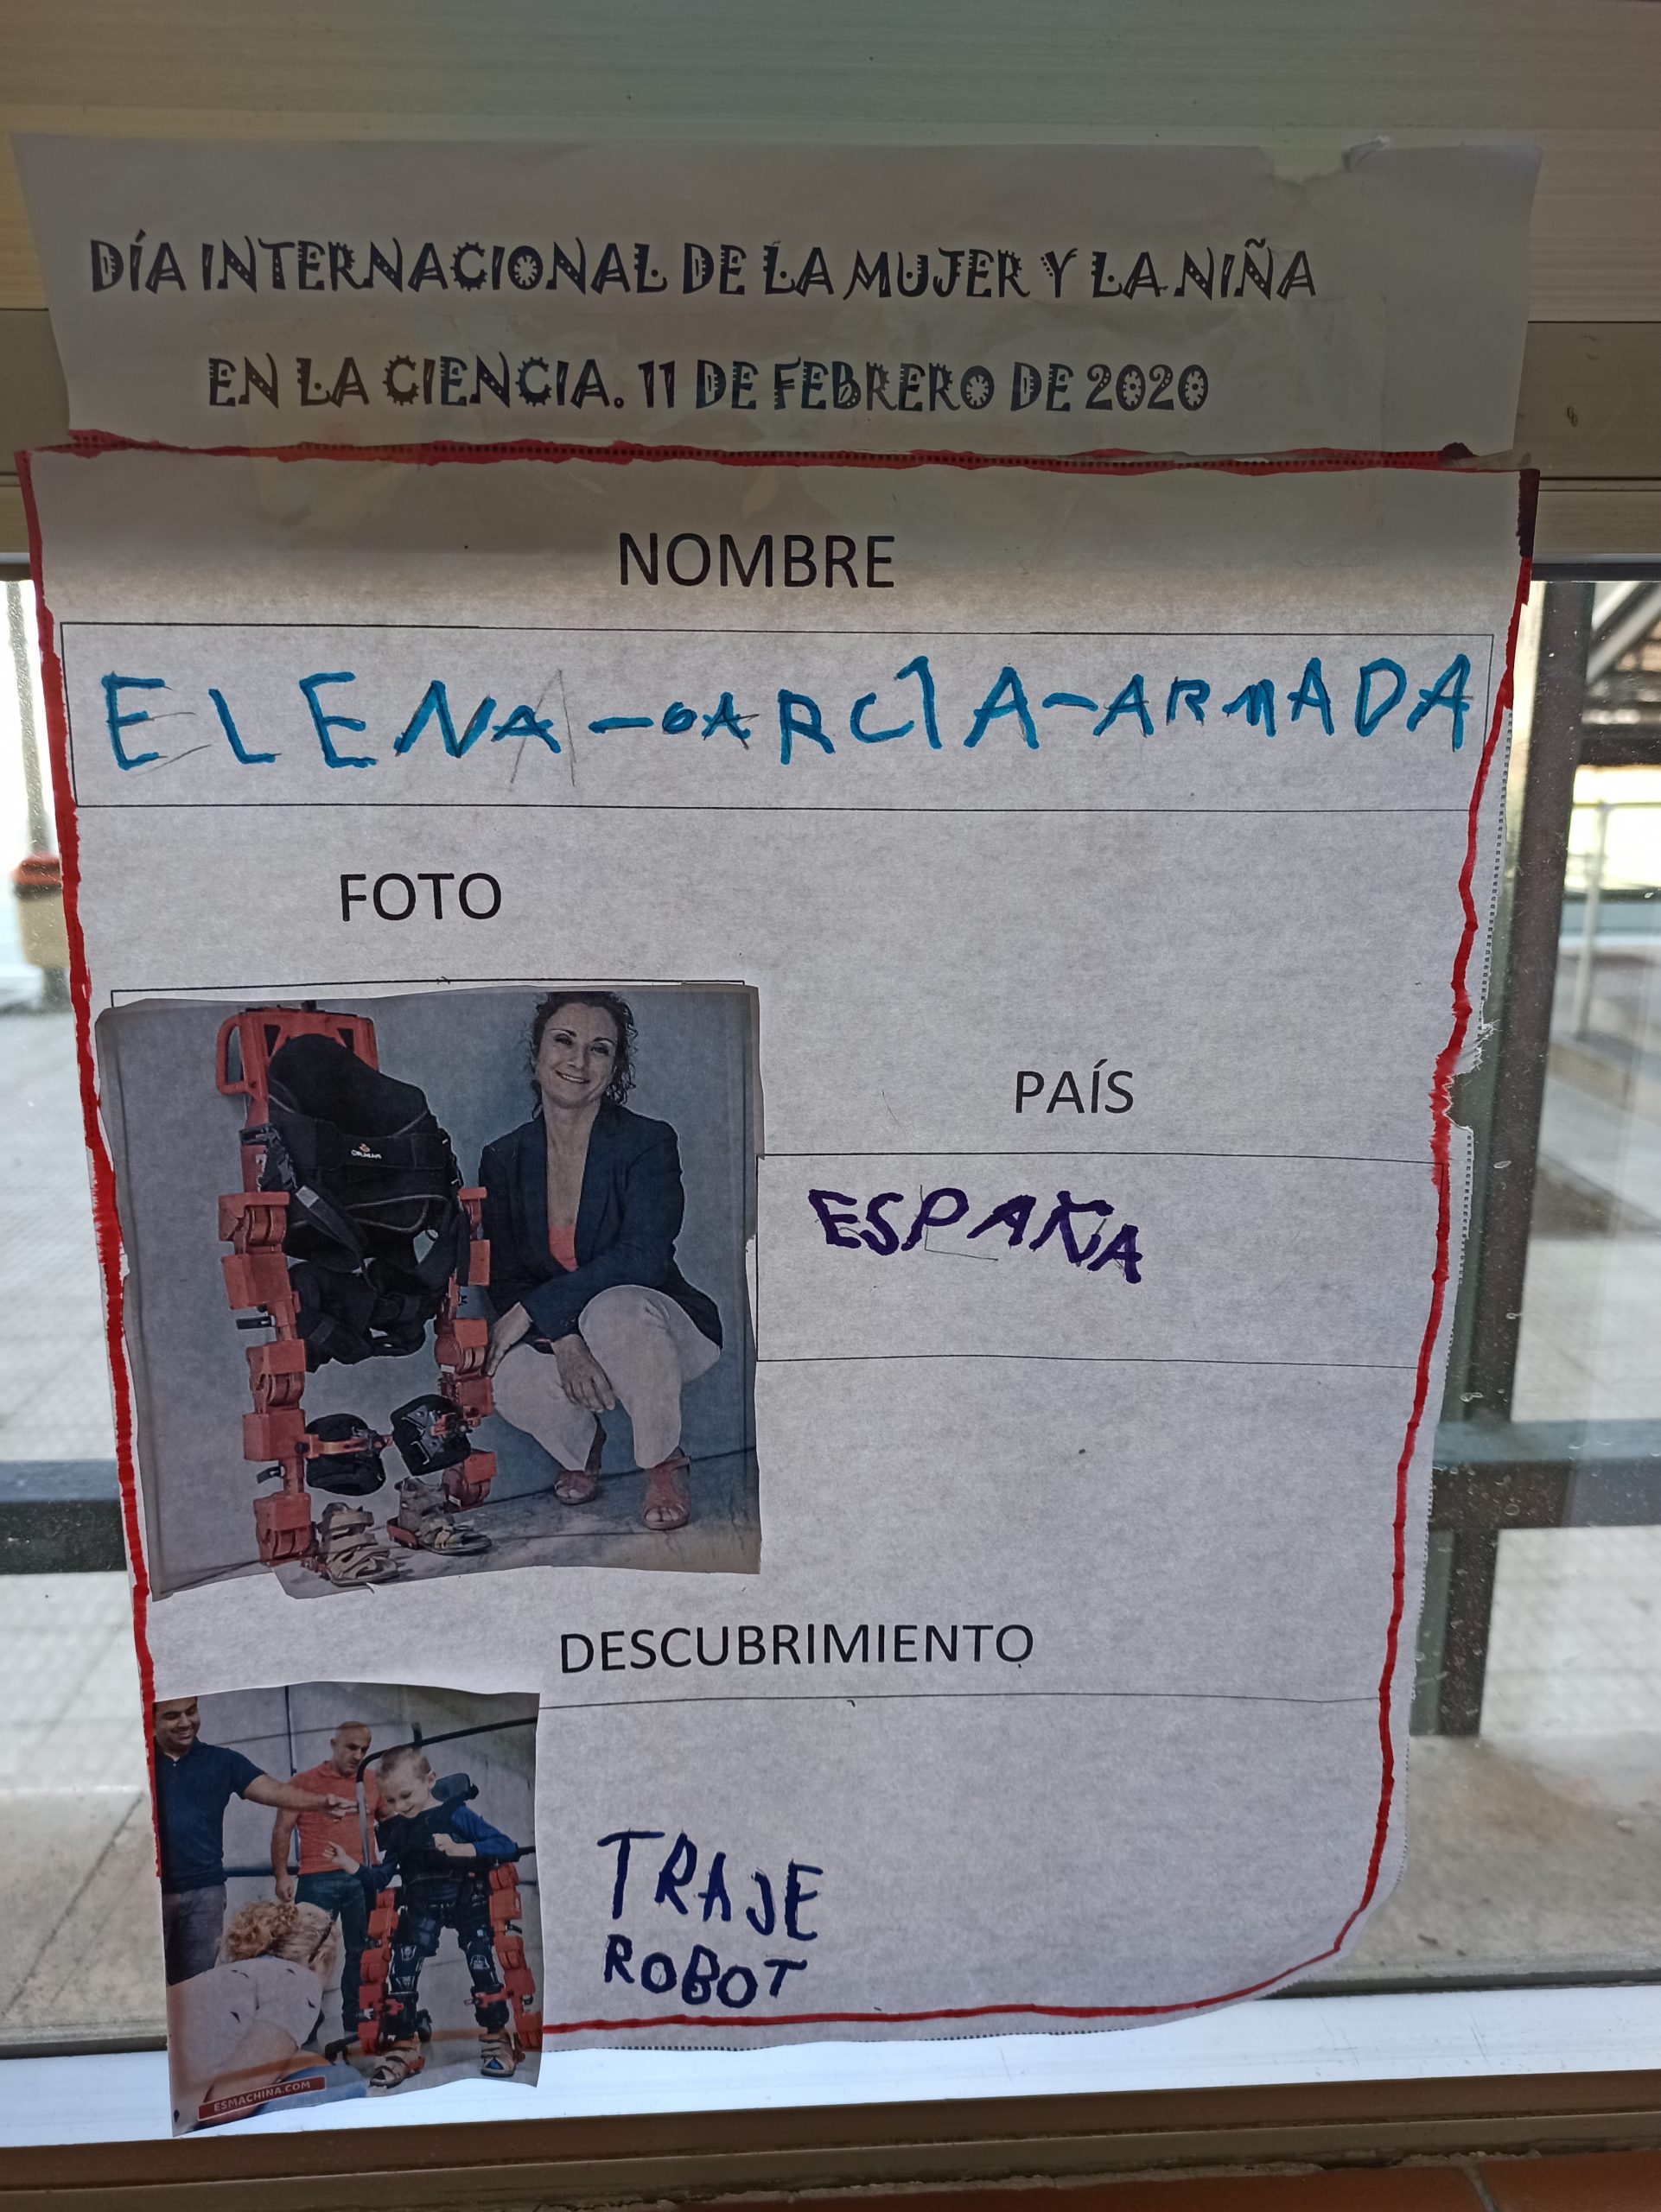 DÍA INTERNACIONAL DE LA MUJER Y LA NIÑA
EN LA CIENCIA. 11 DE FEBRERO DE 2020
NOMBRE
ELENA-GARCÍA-ARMADA
FOTO
PAÍS
ESPAÑA
DESCUBRIMIENTO
TRAJE
ROBOT
ESMACHINA.COM